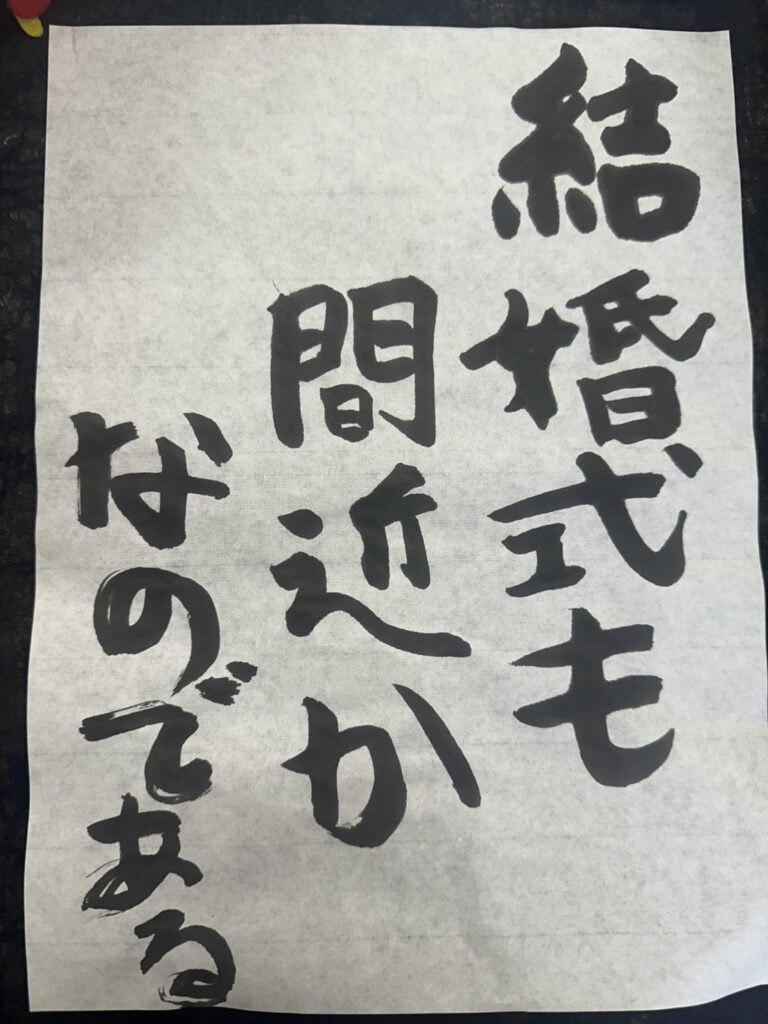 結婚式も
間近か
なのである